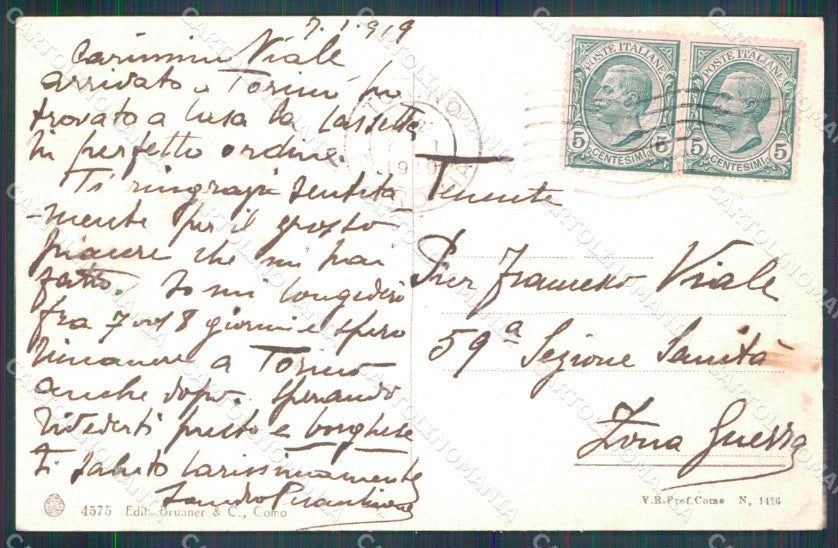 7.1.919
Carissimo Viale
arrivato a Torino ho
trovato a casa la cassetta
in perfetto ordine.
Ti ringrazio sentita-
mente per il grosso
piacere che mi hai
fatto. Io mi congederò
fra 7 od 8 giorni e spero
rimanere a Torino
anche dopo. Sperando
rivederti presto e borghese
ti saluto carissimamente
Sandro
POSTE ITALIANE
5 CENTESIMI 5
POSTE ITALIANE
5 CENTESIMI 5
Tenente
Pier Francesco Viale
59ª Sezione Sanità
Zona Guerra
4575 Edit. Brunner & C., Como
V.R.Pref.Como N. 1426
CARTOLINOMANIA